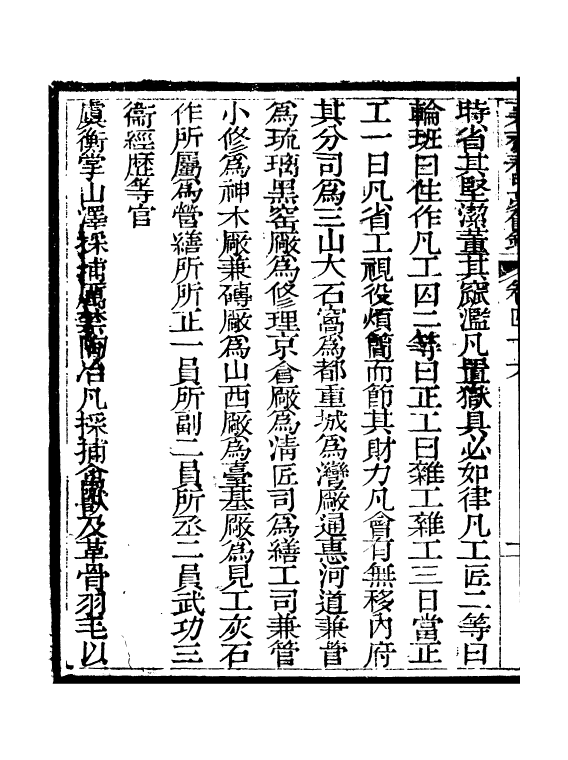 時省其堅潔董其窳濫凡置獄具必如律凡工匠二等曰
輪班曰住作凡工囚二等曰正工曰雜工雜工三日當正
工一日凡省工視役煩簡而節其財力凡會有無移內府
其分司為三山大石窩為都重城為灣廠通惠河道兼管
為琉璃黑窑廠為修理京倉廠為清匠司為繕工司兼管
小修為神木廠兼磚廠為山西廠為臺基廠為見工灰石
作所屬為營繕所所正一員所副二員所丞二員武功三
衞經歷等官
虞衡掌山澤採捕厲禁陶冶凡採捕禽獸及革骨羽毛以